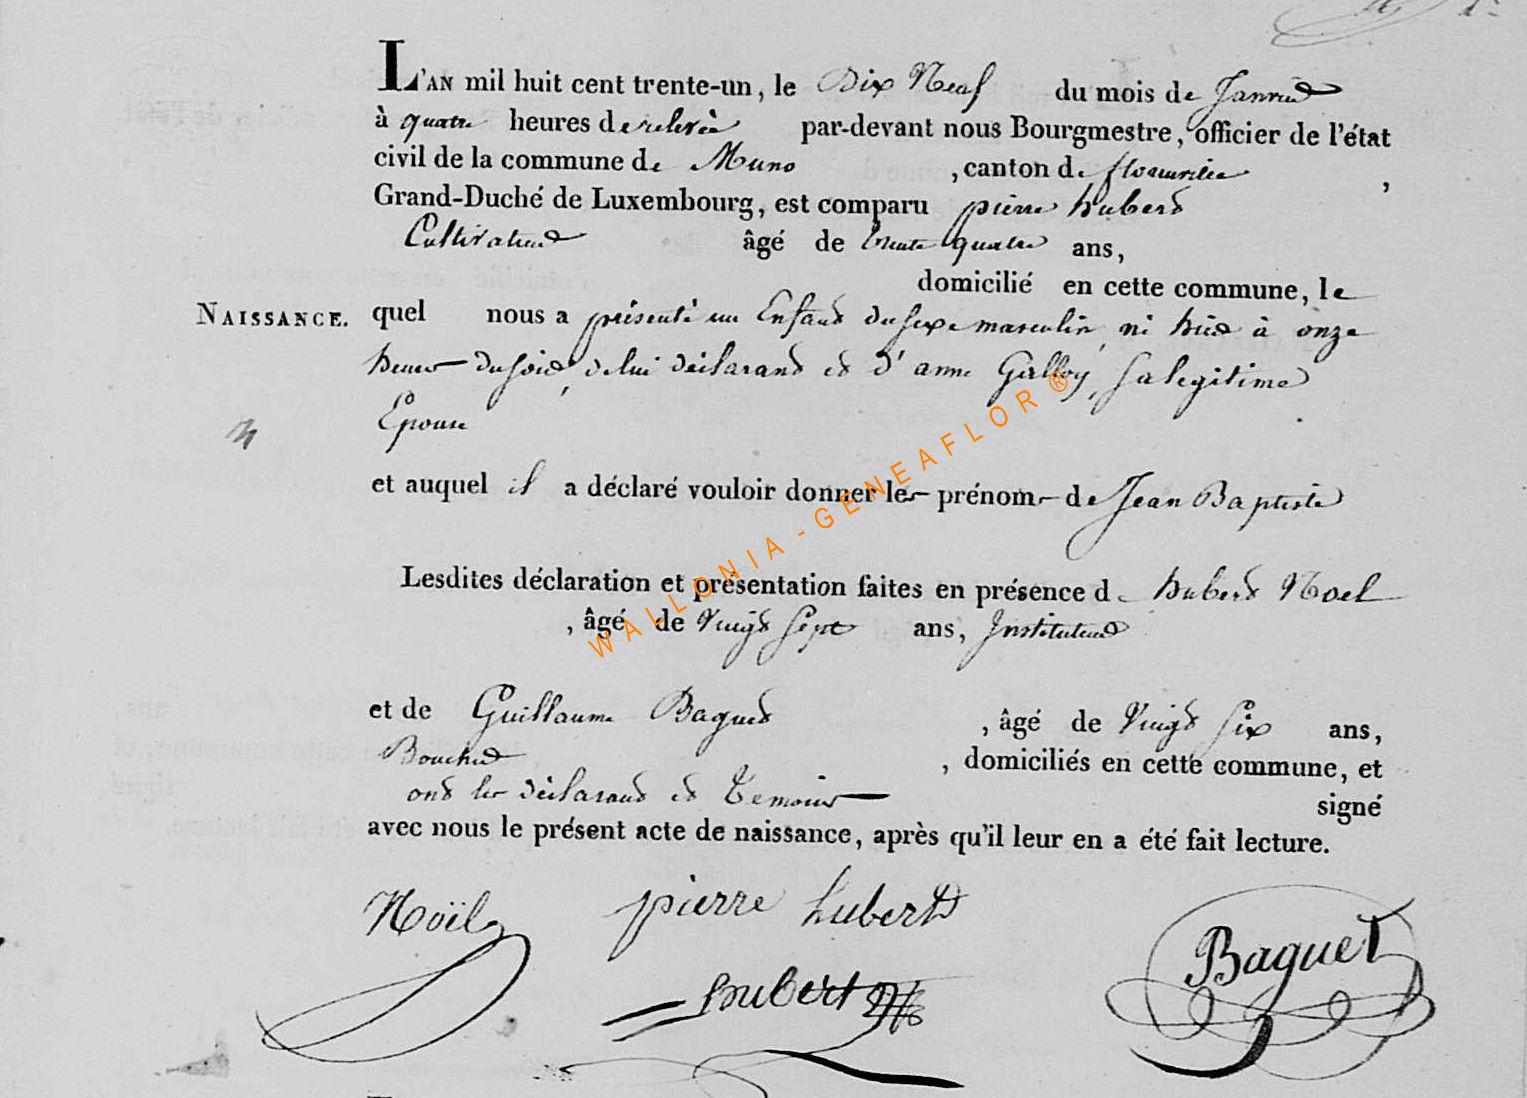 L'AN mil huit cent trente-un, le Dix Neuf du mois de Janvier
à quatre heures de relevée par-devant nous Bourgmestre, officier de l'état
civil de la commune de Muno, canton de florenville,
Grand-Duché de Luxembourg, est comparu pierre hubert
Cultivateur âgé de trente quatre ans,
domicilié en cette commune, le
NAISSANCE.
quel nous a présenté un Enfant du sexe masculin, né hier à onze
heures du soir, de lui déclarant et d'anne Gilloy, sa legitime
Epouse
et auquel il a déclaré vouloir donner les prénoms de Jean Baptiste
Lesdites déclaration et présentation faites en présence de hubert Noel
, âgé de Vingt Sept ans, Instituteur
et de Guillaume Baguet, âgé de Vingt Six ans,
Boucher, domiciliés en cette commune, et
ont les déclarant et temoins signé
avec nous le présent acte de naissance, après qu'il leur en a été fait lecture.
Noël pierre hubert
hubert Baguet
WALLONIA-GENEAFLOR®